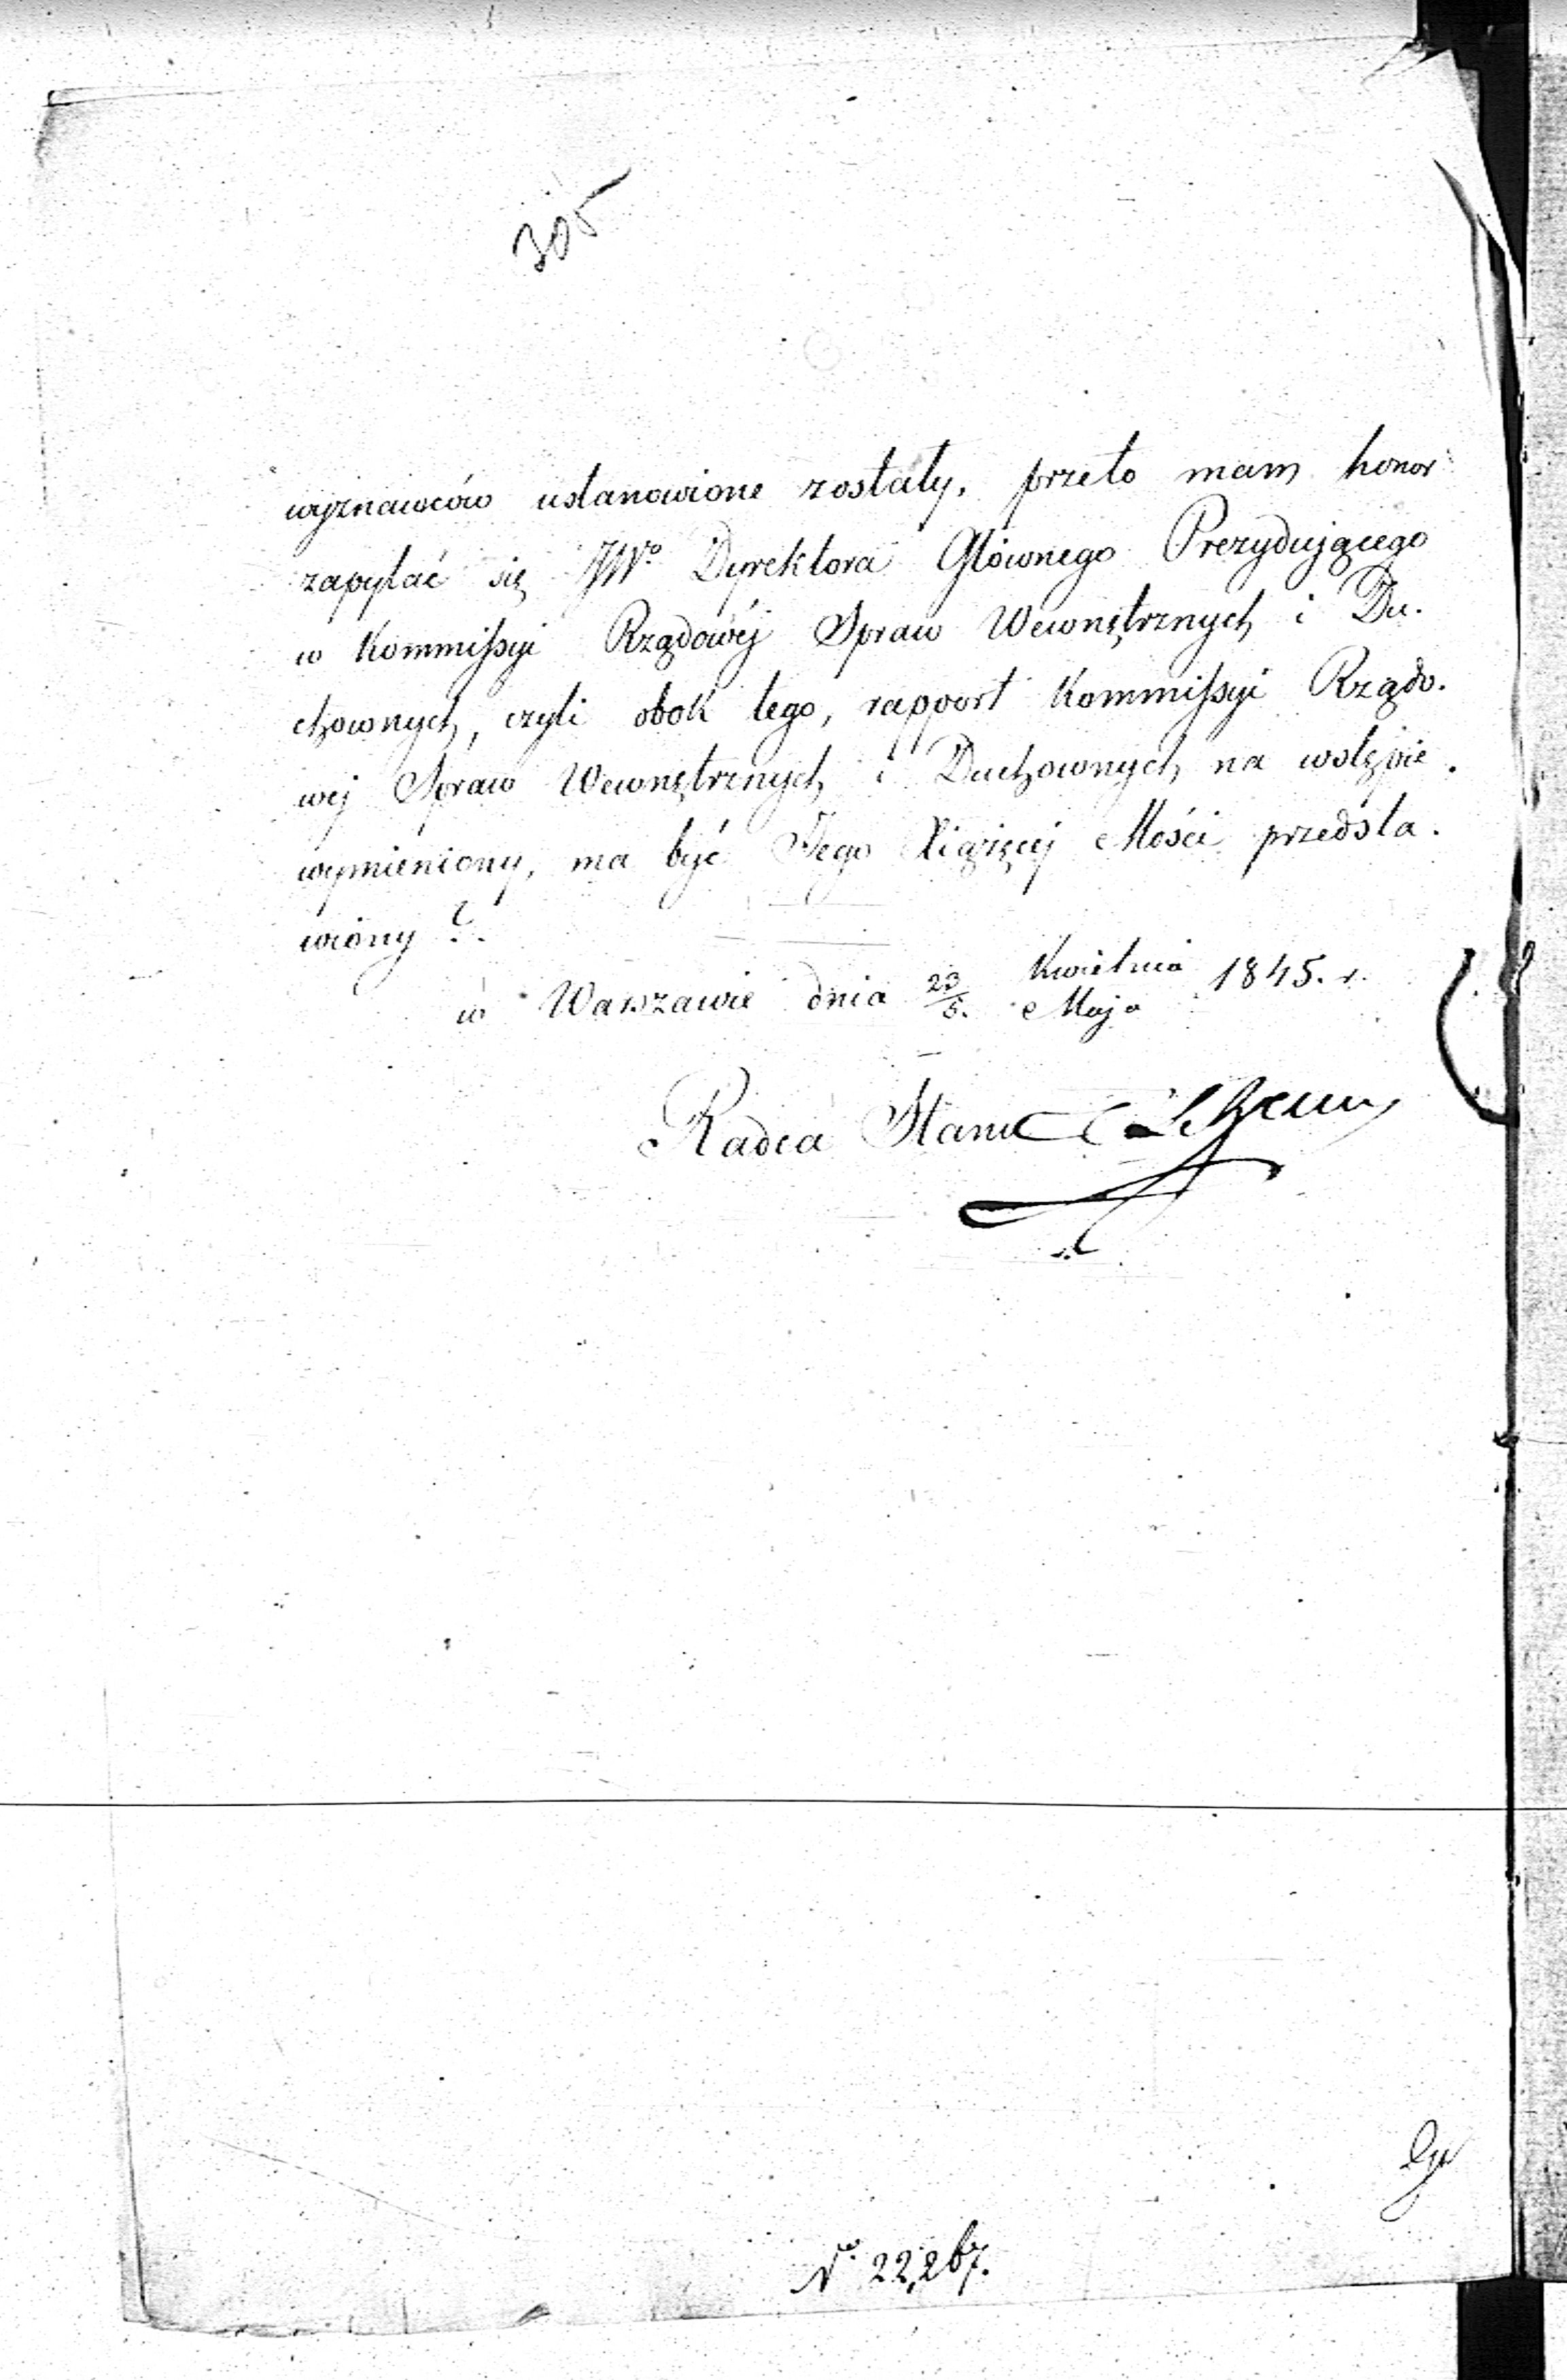 305
wyznawców ustanowione zostały, przeto mam honor
zapytać się JWo Dyrektora Głównego Prezydującego
w Kommissyi Rządowéj Spraw Wewnętrznych i Du.
chownych, czyli obok tego, rapport Kommissyi Rządo.
wej Spraw Wewnętrznych i Duchownych na wstępie
wymieniony, ma być Jego Xiążęcej Mości przedsta.
wiony?
w Warszawie dnia 23/5. Kwietnia/Maja 1845. r.
Radca Stanu
No 22,267.